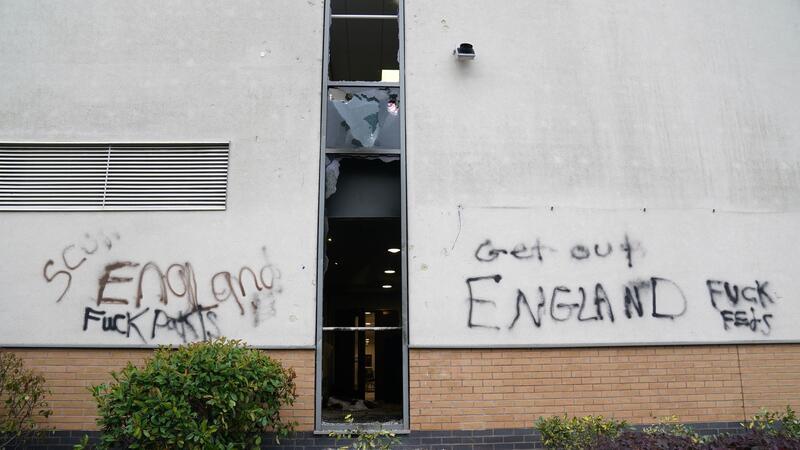 Scum
England
Fuck Pakis
Get out
ENGLAND
FUCK
FEds